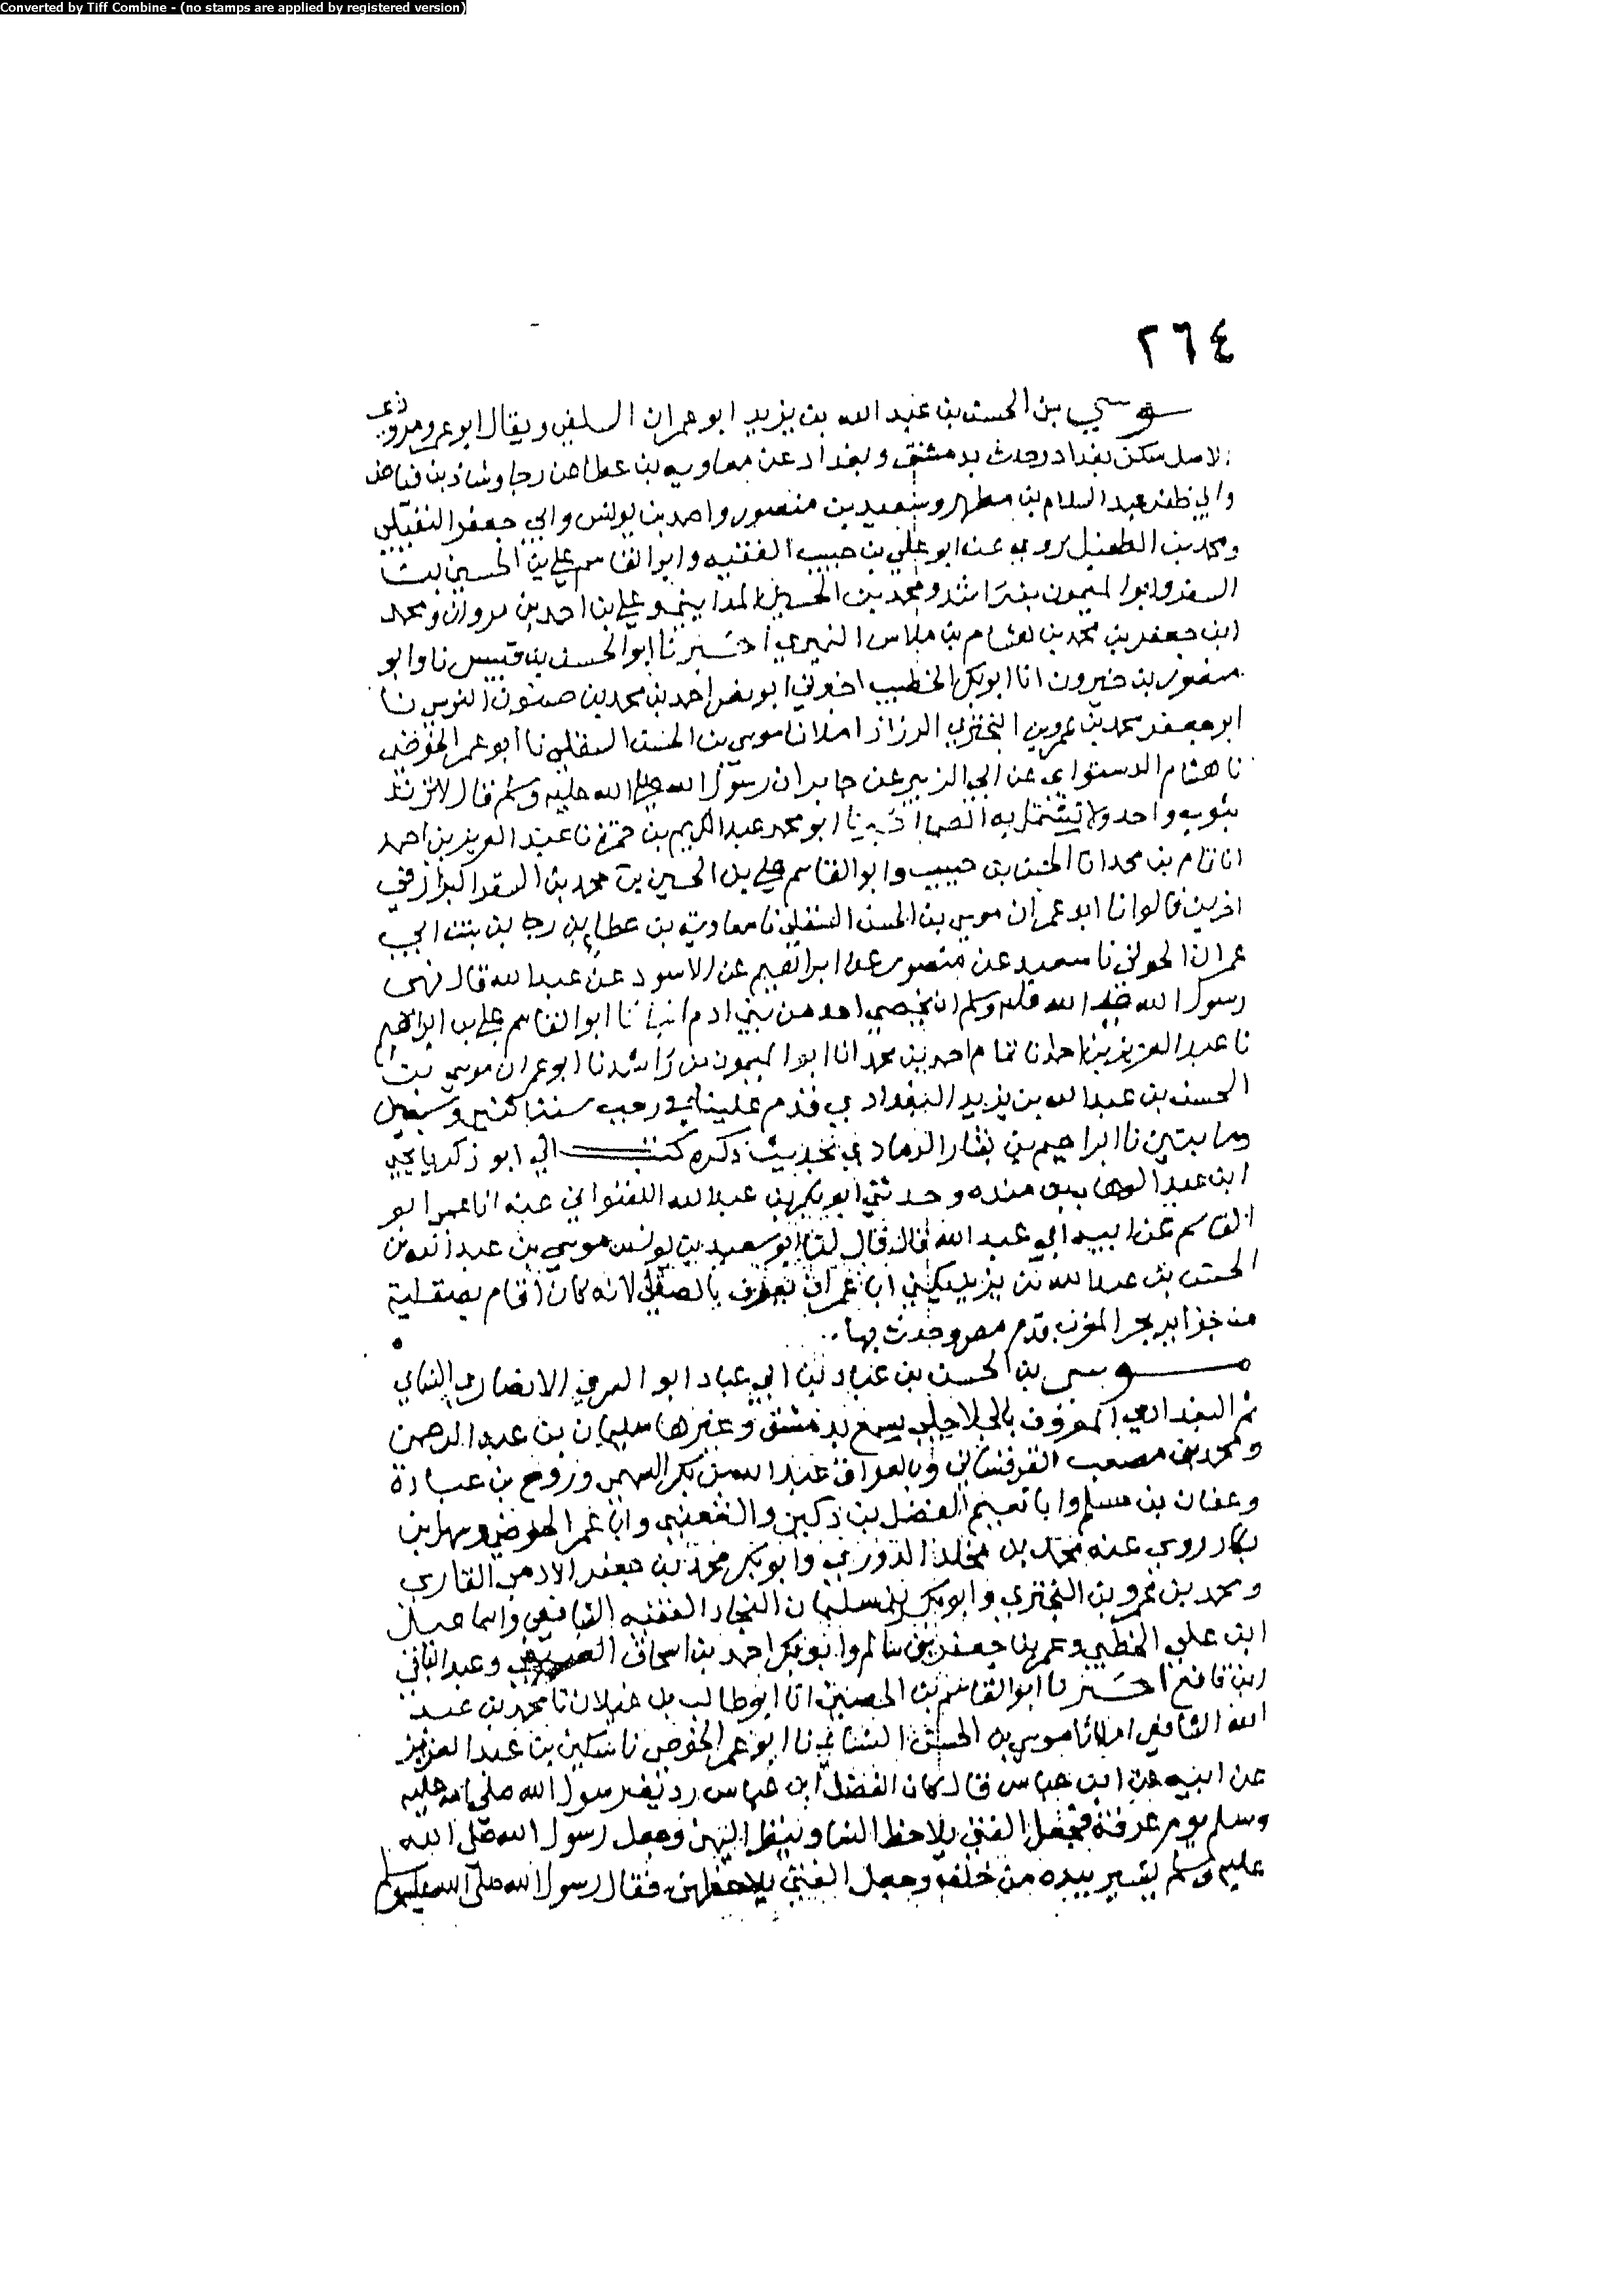 Converted by Tiff Combine - (no stamps are applied by registered version)
٢٦٤
موسي بن الحسن بن عبد الله بن يزيد ابو عمران السلفي ويقال ابو عمرو مروزي
الاصل سكن بغداد وحدث بدمشق وبغداد عن معاوية بن عطا بن رجا وشاذ بن فياض
وابي ظفر عبد السلام بن مطهر وسعيد بن منصور واحمد بن يونس وابي جعفر النفيلي
ومحمد بن الطفيل روي عنه ابو علي بن حبيب الفقيه وابو القاسم علي بن الحسين بن
السفر وابو الميمون بن راشد ومحمد بن الحسين المدايني وعلي بن احمد بن مروان ومحمد
ابن جعفر بن محمد بن هشام بن ملاس النميري اخبرنا ابو الحسن بن قبيس نا وابو
منصور بن خيرون انا ابو بكر الخطيب اخبرني ابو نصر احمد بن محمد بن حسنون النرسي نا
ابو جعفر محمد بن عمرو بن البختري الرزاز املا نا موسي بن الحسن السقلي نا ابو عمر الحوضي
نا هشام الدستواي عن ابي الزبير عن جابر ان رسول الله صلي الله عليه وسلم قال لا ترتد
بثوب واحد ولا تشتمل به الصما اخبرنا ابو محمد عبد الكريم بن حمزة نا عبد العزيز بن احمد
انا تمام بن محمد انا الحسن بن حبيب وابو القاسم علي بن الحسين بن محمد بن السفر البزاز في
اخرين قالوا نا ابو عمران موسي بن الحسن السقلي نا معاوية بن عطا بن رجا بن بنت ابي
عمران الجوني نا سعيد عن منصور عن ابراهيم عن الاسود عن عبد الله قال نهى
رسول الله صلى الله عليه وسلم ان يخصي احد من بني ادم انبانا ابو القاسم علي بن ابراهيم
نا عبد العزيز بن احمد نا تمام احمد بن محمد انا ابو الميمون بن راشد نا ابو عمران موسي بن
الحسن بن عبد الله بن يزيد البغدادي قدم علينا في رجب سنة اثنتين وسبعين
ومايتين نا ابراهيم بن بشار الرمادي بحديث ذكره كتب الي ابو زكريا يحيي
ابن عبد الوهاب بن منده وحدثني ابو بكر بن عبد الله اللفتواني عنه انا عمر ابو
القاسم عن ابيه ابي عبد الله قال قال لنا ابو سعيد بن يونس موسي بن عبد الله بن
الحسن بن عبد الله بن يزيد يكني ابا عمران يعرف بالصقلي لانه كان اقام بصقلية
من جزاير بحر المغرب قدم مصر وحدث بها
موسي بن الحسن بن عباد بن ابي عباد ابو السري الانصاري النساي
ثم البغدادي المعروف بالجلاجلي سمع بدمشق وغيرها سليمان بن عبد الرحمن
ومحمد بن مصعب القرقساني وبالعراق عبد الله بن بكر السهمي وروح بن عبادة
وعفان بن مسلم وابا نعيم الفضل بن دكين والقعنبي وابا عمر الحوضي وسهل بن
بكار روي عنه محمد بن مخلد الدوري وابو بكر محمد بن جعفر الادمي القاري
ومحمد بن عمرو بن البختري وابو بكر بن سليمان النجاد الفقيه الشافعي واسماعيل
ابن علي الخطبي وعمر بن جعفر بن سالم وابو بكر احمد بن اسحاق وعبد الباقي
ابن قانع اخبرنا ابو القاسم بن الحصين انا ابو طالب بن غيلان نا محمد بن عبد
الله الشافعي املا نا موسي بن الحسن النساي نا ابو عمر الحوضي نا سكين بن عبد العزيز
عن ابيه عن ابن عباس قال كان الفضل بن عباس رديف رسول الله صلى الله عليه
وسلم يوم عرفة فجعل الفتي يلاحظ النسا وينظر اليهن وجعل رسول الله صلى الله
عليه وسلم يشير بيده من خلفه وجعل الفتي يلاحظهن فقال رسول الله صلى الله عليه وسلم